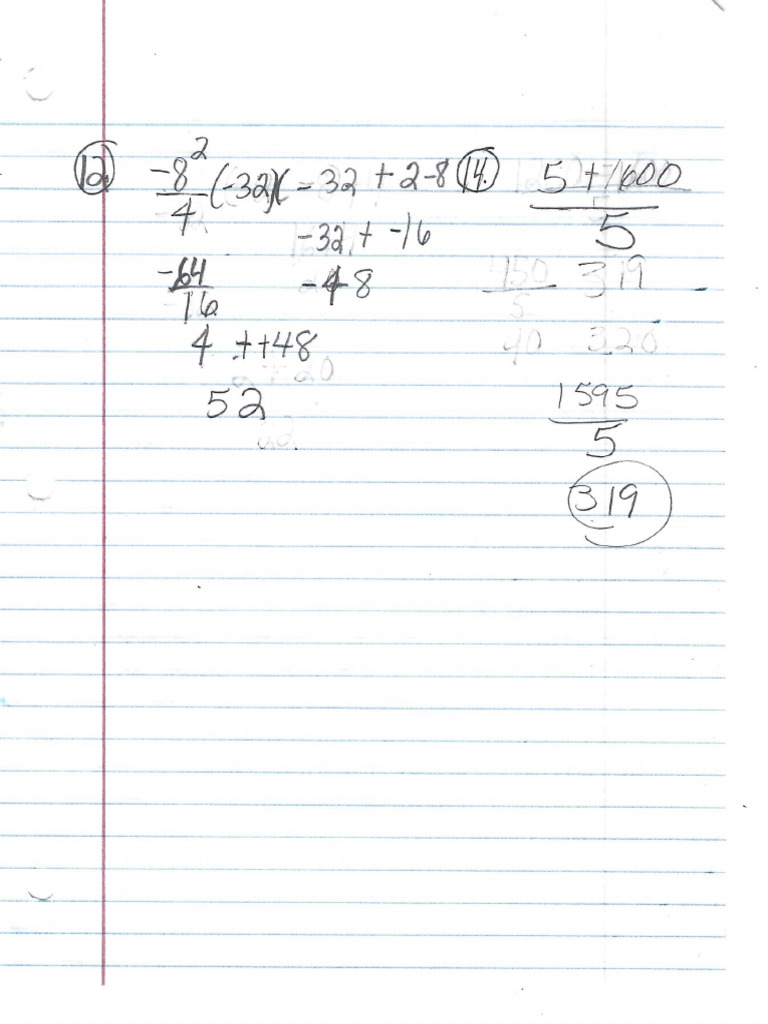 12. -8² / 4 (-32)(-32 + 2-8
-32 + -16
-64 / 16 -48
4 ++48
52
14. 5 + 1600 / 5
450 / 5 319
40 320
1595 / 5
319